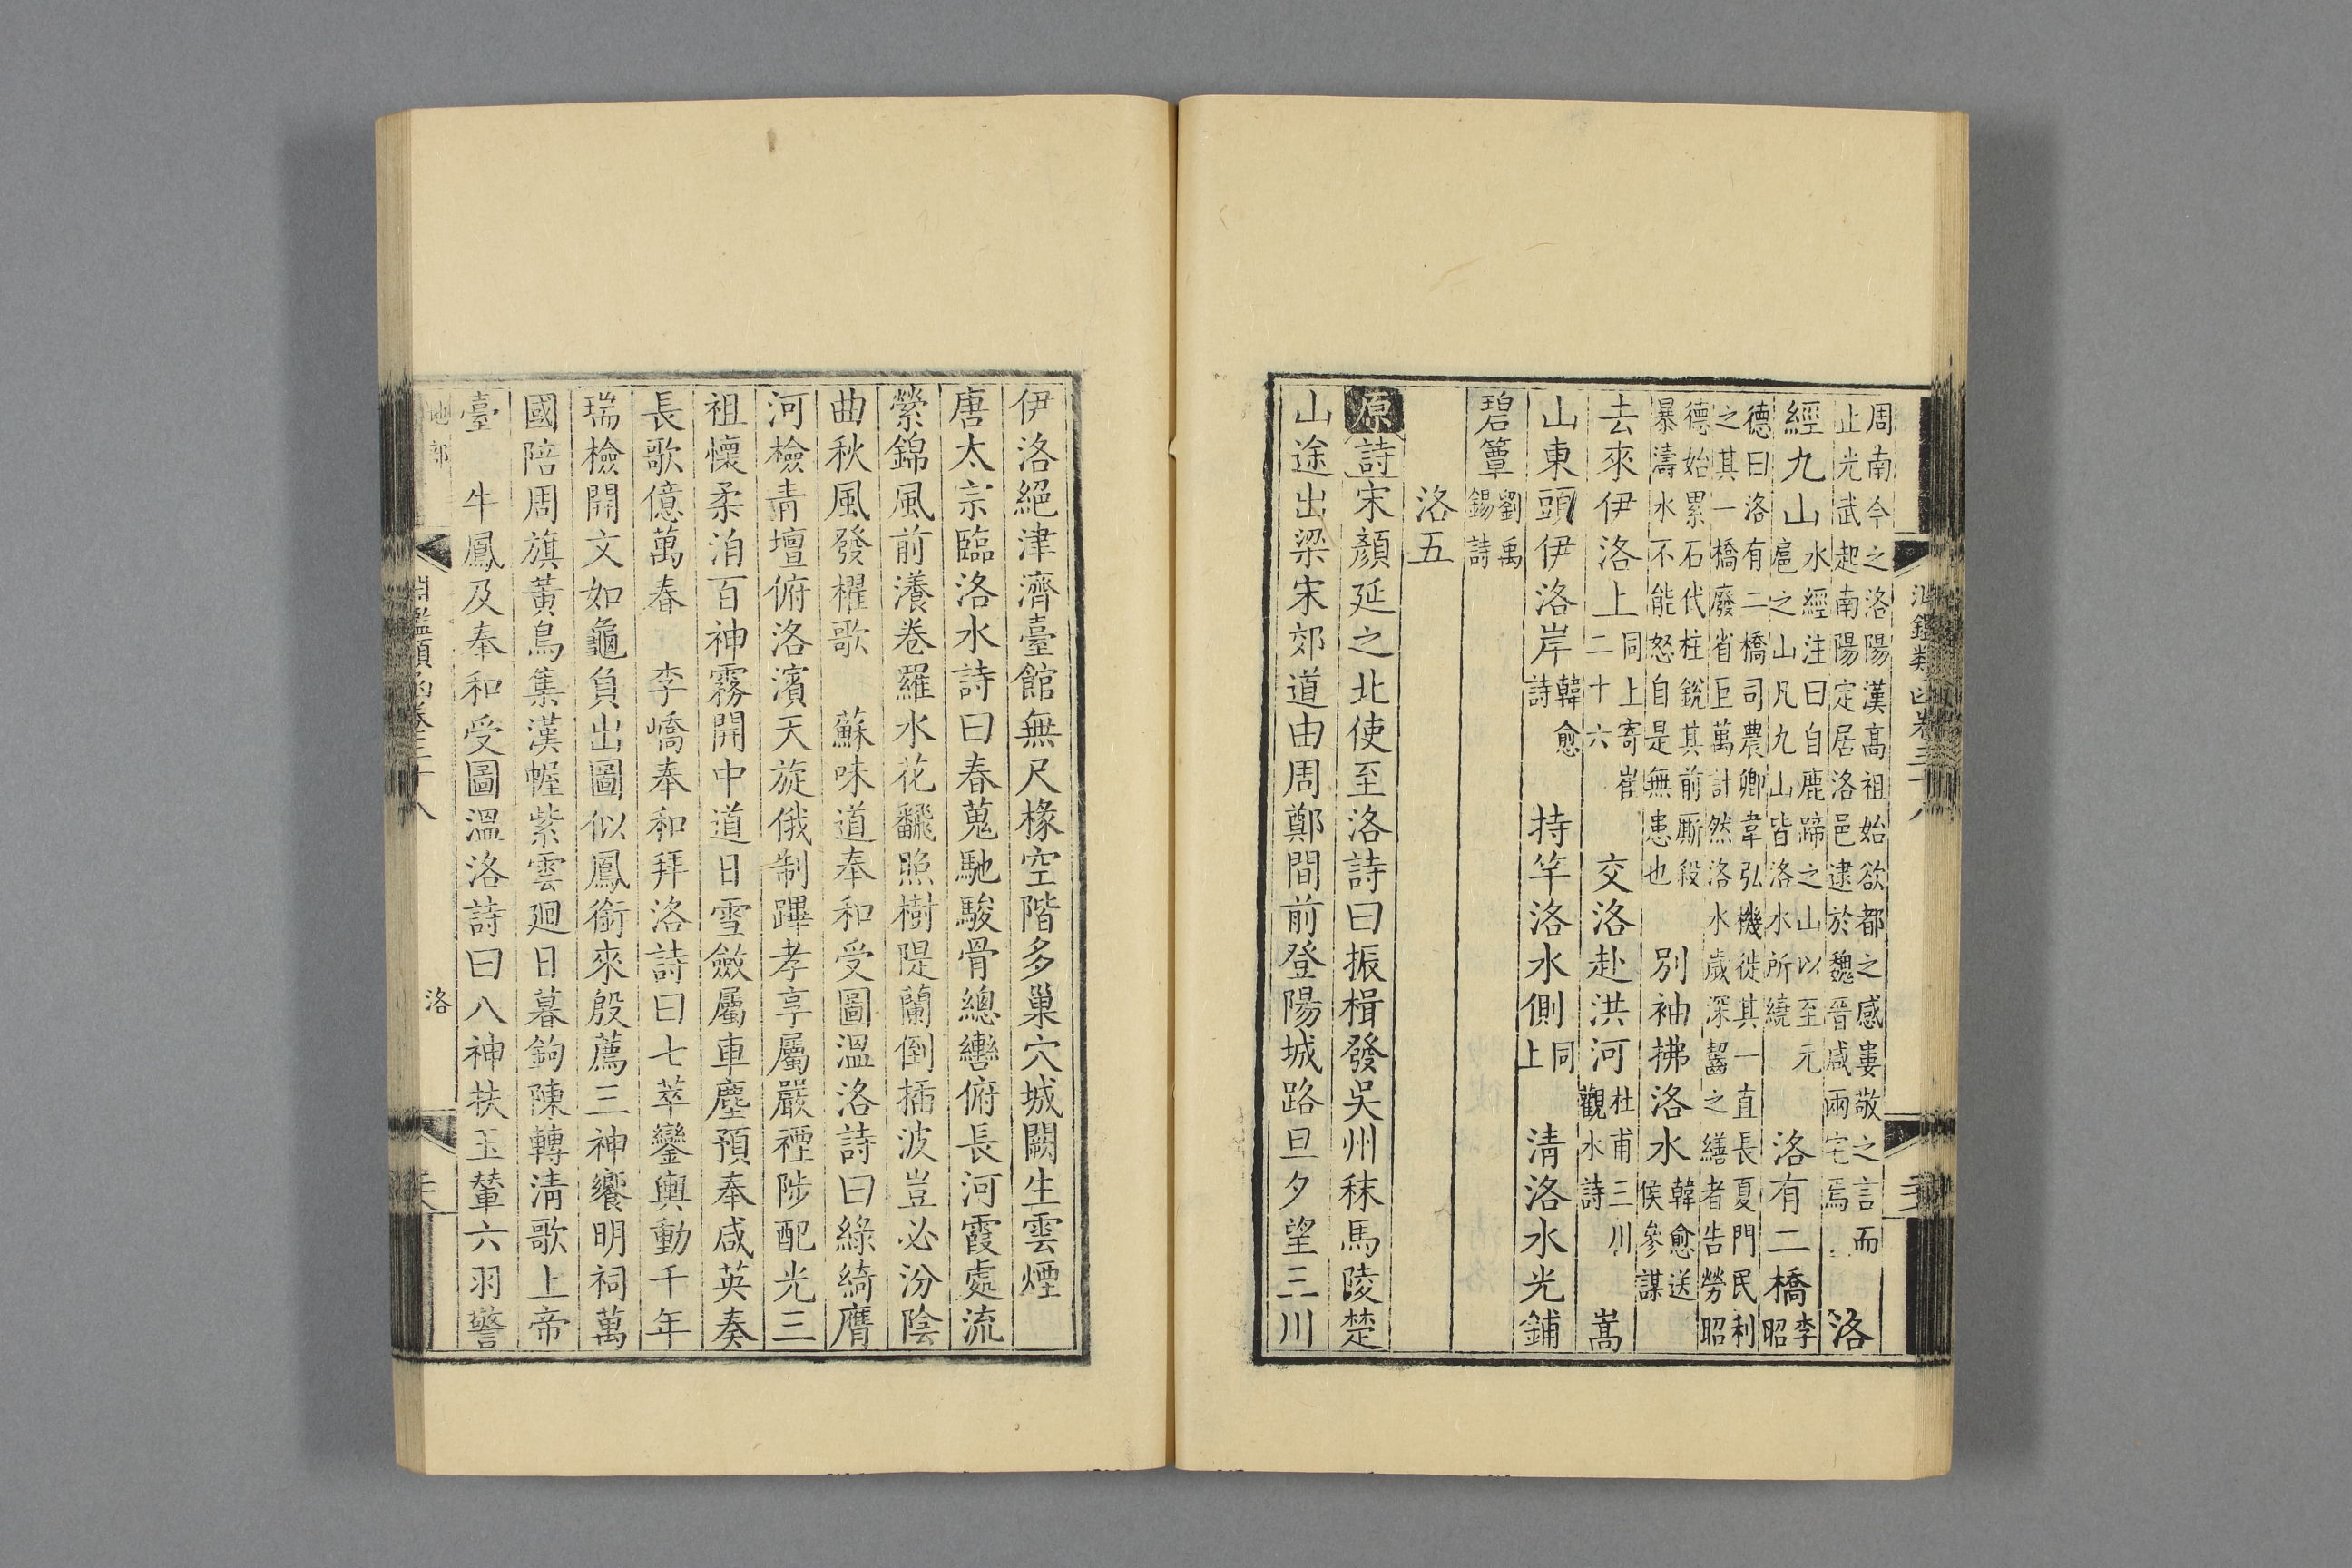 周南今之洛陽漢高祖始欲都之感婁敬之言而
止光武起南陽定居洛邑逮於魏晉咸兩宅焉
洛
經九山
水經注曰自鹿蹄之山以至元
扈之山凡九山皆洛水所繞
洛有二橋
李
昭
德曰洛有二橋司農卿韋弘機徙其一直長夏門民利
之其一橋廢省巨萬計然洛水歲深齧之繕者告勞昭
德始累石代柱銳其前厮殺
暴濤水不能怒自是無患也
別袖拂洛水
韓愈送
候參謀
去來伊洛上
同上寄崔
二十六
交洛赴洪河
杜甫三川
觀水詩
嵩
山東頭伊洛岸
韓愈
詩
持竿洛水側
同
上
清洛水光鋪
碧簟
劉禹
錫詩
洛五
原詩宋顏延之北使至洛詩曰振楫發吳州秣馬陵楚
山途出梁宋郊道由周鄭間前登陽城路旦夕望三川
伊洛絕津濟臺館無尺椽空階多巢穴城闕生雲煙
唐太宗臨洛水詩曰春蒐馳駿骨總轡俯長河霞處流
縈錦風前瀁卷羅水花翻照樹隄蘭倒插波豈必汾陰
曲秋風發櫂歌　蘇味道奉和受圖溫洛詩曰綠綺膺
河檢青壇俯洛濱天旋俄制蹕孝享屬嚴禋陟配光三
祖懷柔洎百神霧開中道日雪斂屬車塵預奉咸英奏
長歌億萬春　李嶠奉和拜洛詩曰七萃鑾輿動千年
瑞檢開文如龜負出圖似鳳銜來殷薦三神饗明祠萬
國陪周旗黃鳥集漢幄紫雲廻日暮鉤陳轉清歌上帝
臺　牛鳳及奉和受圖溫洛詩曰八神扶玉輦六羽警
地部
洛